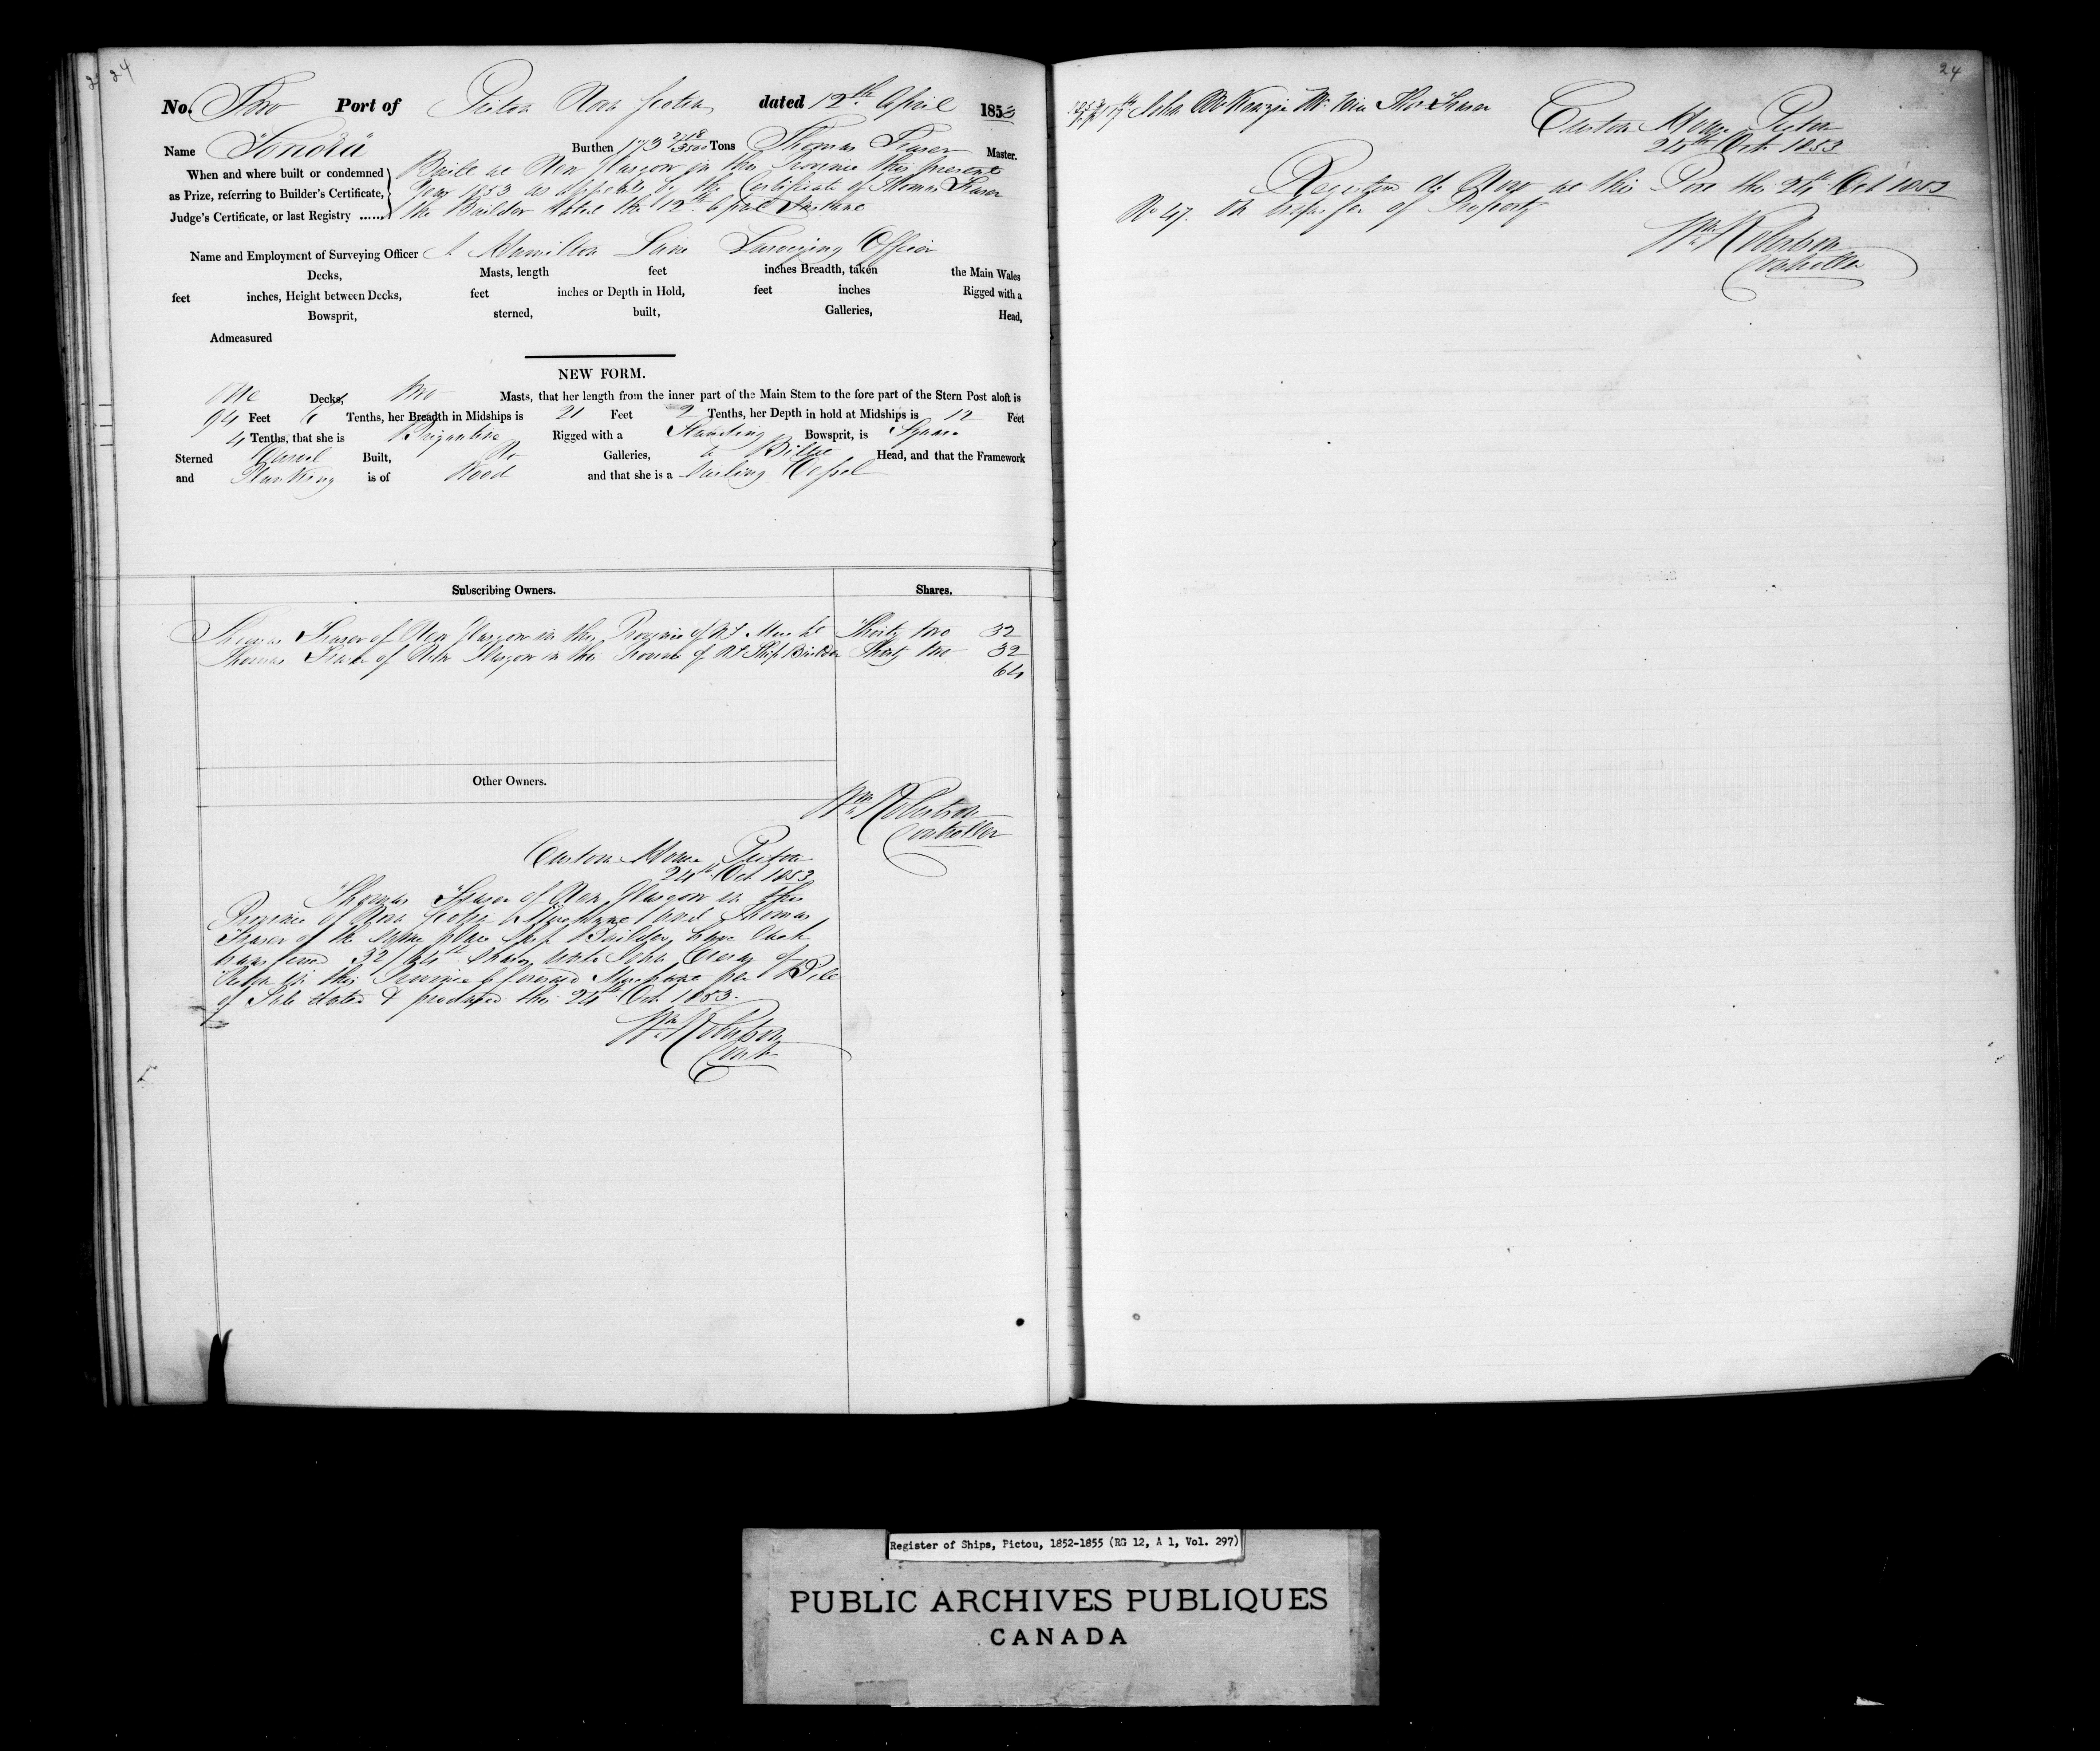 24
No. Two Port of Pictou Nova Scotia dated 12th April 1853
Name "Sonora" Burthen 173 Tons Thomas Fraser Master.
When and where built or condemned
as Prize, referring to Builder's Certificate,
Judge's Certificate, or last Registry ......
Built at New Glasgow in this Province this present
Year 1853 as appears by the Certificate of Thomas Fraser
the Builder dated the 12th April Instant
Name and Employment of Surveying Officer Hamilton Lane Surveying Officer
Decks, Masts, length feet inches Breadth, taken the Main Wales
feet inches, Height between Decks, feet inches or Depth in Hold, feet inches Rigged with a
Bowsprit, sterned, built, Galleries, Head,
Admeasured
NEW FORM.
One Decks, two Masts, that her length from the inner part of the Main Stem to the fore part of the Stern Post aloft is
94 Feet 6 Tenths, her Breadth in Midships is 21 Feet 2 Tenths, her Depth in hold at Midships is 12 Feet
4 Tenths, that she is Brigantine Rigged with a Standing Bowsprit, is Square
Sterned Carvel Built, No Galleries, a Billet Head, and that the Framework
and Planking is of Wood and that she is a Sailing Vessel
Subscribing Owners. Shares.
Thomas Fraser of New Glasgow in the Province of NS Mercht Thirty two 32
Thomas Fraser of New Glasgow in the Province of NS Ship Builder Thirty two 32
64
Other Owners.
Wm Robertson
Controller
Custom House Pictou
24th Oct 1853
Thomas Fraser of New Glasgow in the
Province of Nova Scotia Merchant and Thomas
Fraser of the same place Ship Builder have each
transferred 32/64th Shares unto John of
Pictou in this Province Merchant per Bill
of Sale dated & produced this 24th Oct 1853.
Wm Robertson
Contr
24
John McKenzie Mr. vice Thos Fraser
Custom House Pictou
24th Oct 1853
Registered de Novo at this Port this 24th Oct 1853
No 47. on transfer of Property
Wm Robertson
Controller
Register of Ships, Pictou, 1852-1855 (RG 12, A 1, Vol. 297)
PUBLIC ARCHIVES PUBLIQUES
CANADA